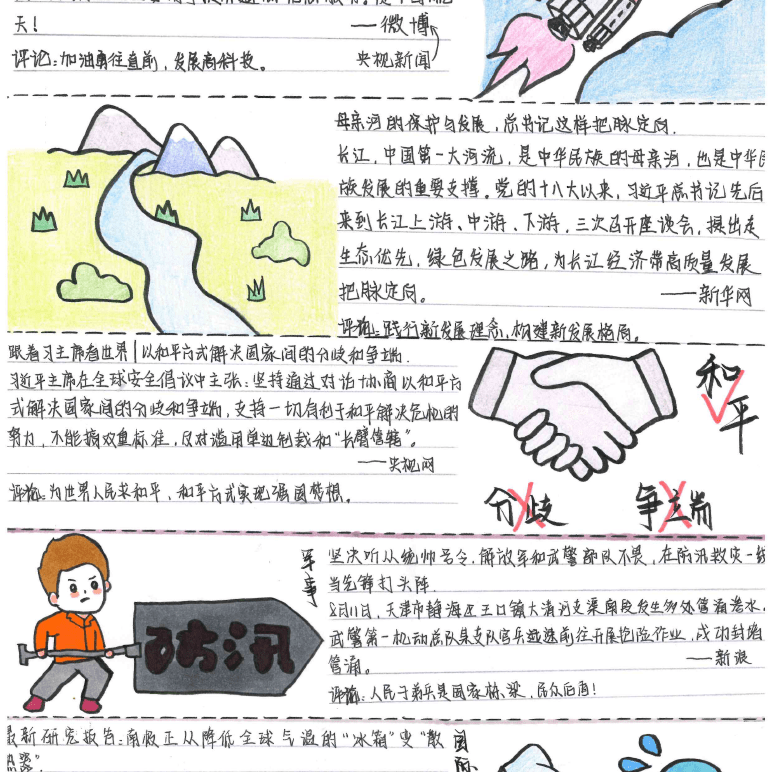 天！ ——微博
评论：加油勇往直前，发展高科技。 央视新闻
母亲河的保护与发展，总书记这样把脉定向.
长江，中国第一大河流，是中华民族的母亲河，也是中华民
族发展的重要支撑。党的十八大以来，习近平总书记先后
来到长江上游、中游、下游，三次召开座谈会，提出走
生态优先，绿色发展之路，为长江经济带高质量发展
把脉定向。 ——新华网
评论：践行新发展理念，构建新发展格局。
跟着习主席看世界|以和平方式解决国家间的分歧和争端.
习近平主席在全球安全倡议中主张：坚持通过对话协商以和平方
式解决国家间的分歧和争端，支持一切有利于和平解决危机的
努力，不能搞双重标准，反对滥用单边制裁和“长臂管辖”。
——央视网
评论：为世界人民求和平，和平方式实现强国梦想。
和平
分歧 争端
军事
坚决听从统帅号令，解放军和武警部队不畏，在防汛救灾一线
当先锋打头阵.
8月11日，天津市静海区王口镇大清河支渠南段发生多处管涌渗水。
武警第一机动总队某支队官兵迅速前往开展抢险作业，成功封堵
管涌。 ——新浪
评论：人民子弟兵是国家栋梁，民众后盾！
防汛
最新研究报告：南极正从降低全球气温的“冰箱”变“散
热器”
国际